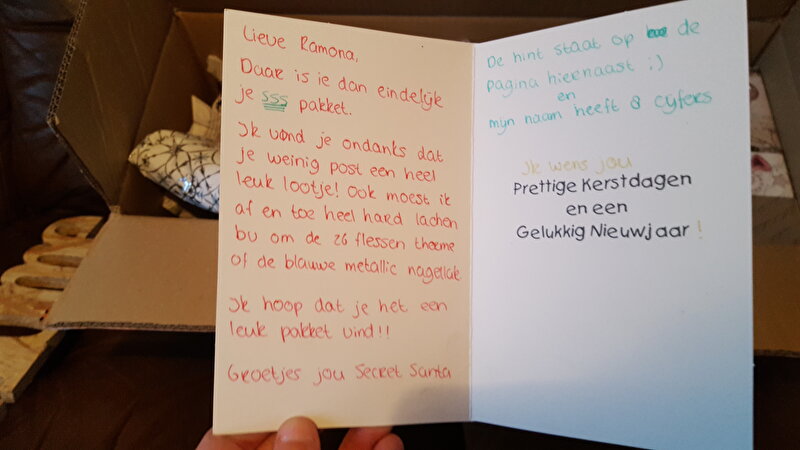 Lieve Ramona,
Daar is ie dan eindelijk
je SSS pakket.
Ik vond je ondanks dat
je weinig post een heel
leuk lootje! Ook moest ik
af en toe heel hard lachen
bv om de 26 flessen theme
of de blauwe metallic nagellak
Ik hoop dat je het een
leuk pakket vind!!
Groetjes jou Secret Santa
De hint staat op de
pagina hiernaast :)
en
mijn naam heeft 8 cyfers
Ik wens jou
Prettige Kerstdagen
en een
Gelukkig Nieuwjaar !